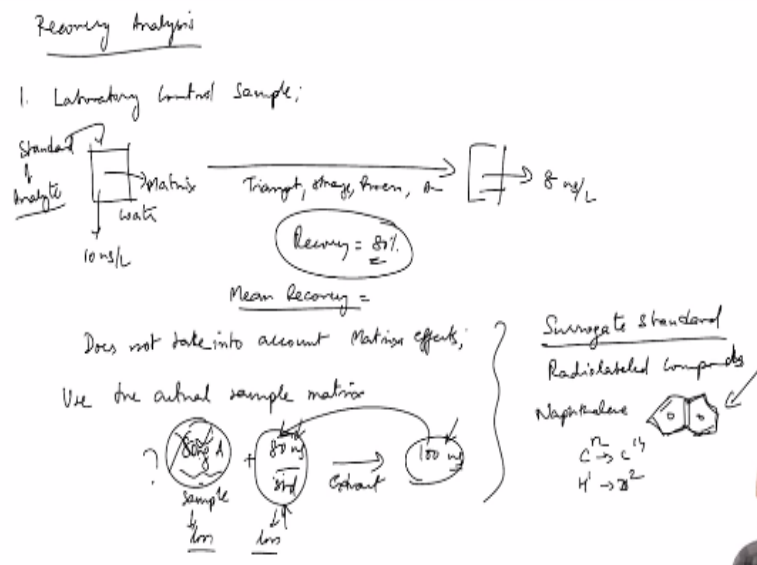 Recovery Analysis
1. Laboratory Control Sample;
Standard
Analyte
Matrix
Water
10 ng/L
Transpt, storage, Process,
8 ng/L
Recovery = 80%
Mean Recovery =
Does not take into account Matrix effects;
Use the actual sample matrix
? 80ng A + 80 ng std
Extract
100 ng
sample
loss
loss
Surrogate Standard
Radiolabeled Compounds
Naphthalene
C12 → C14
H1 →